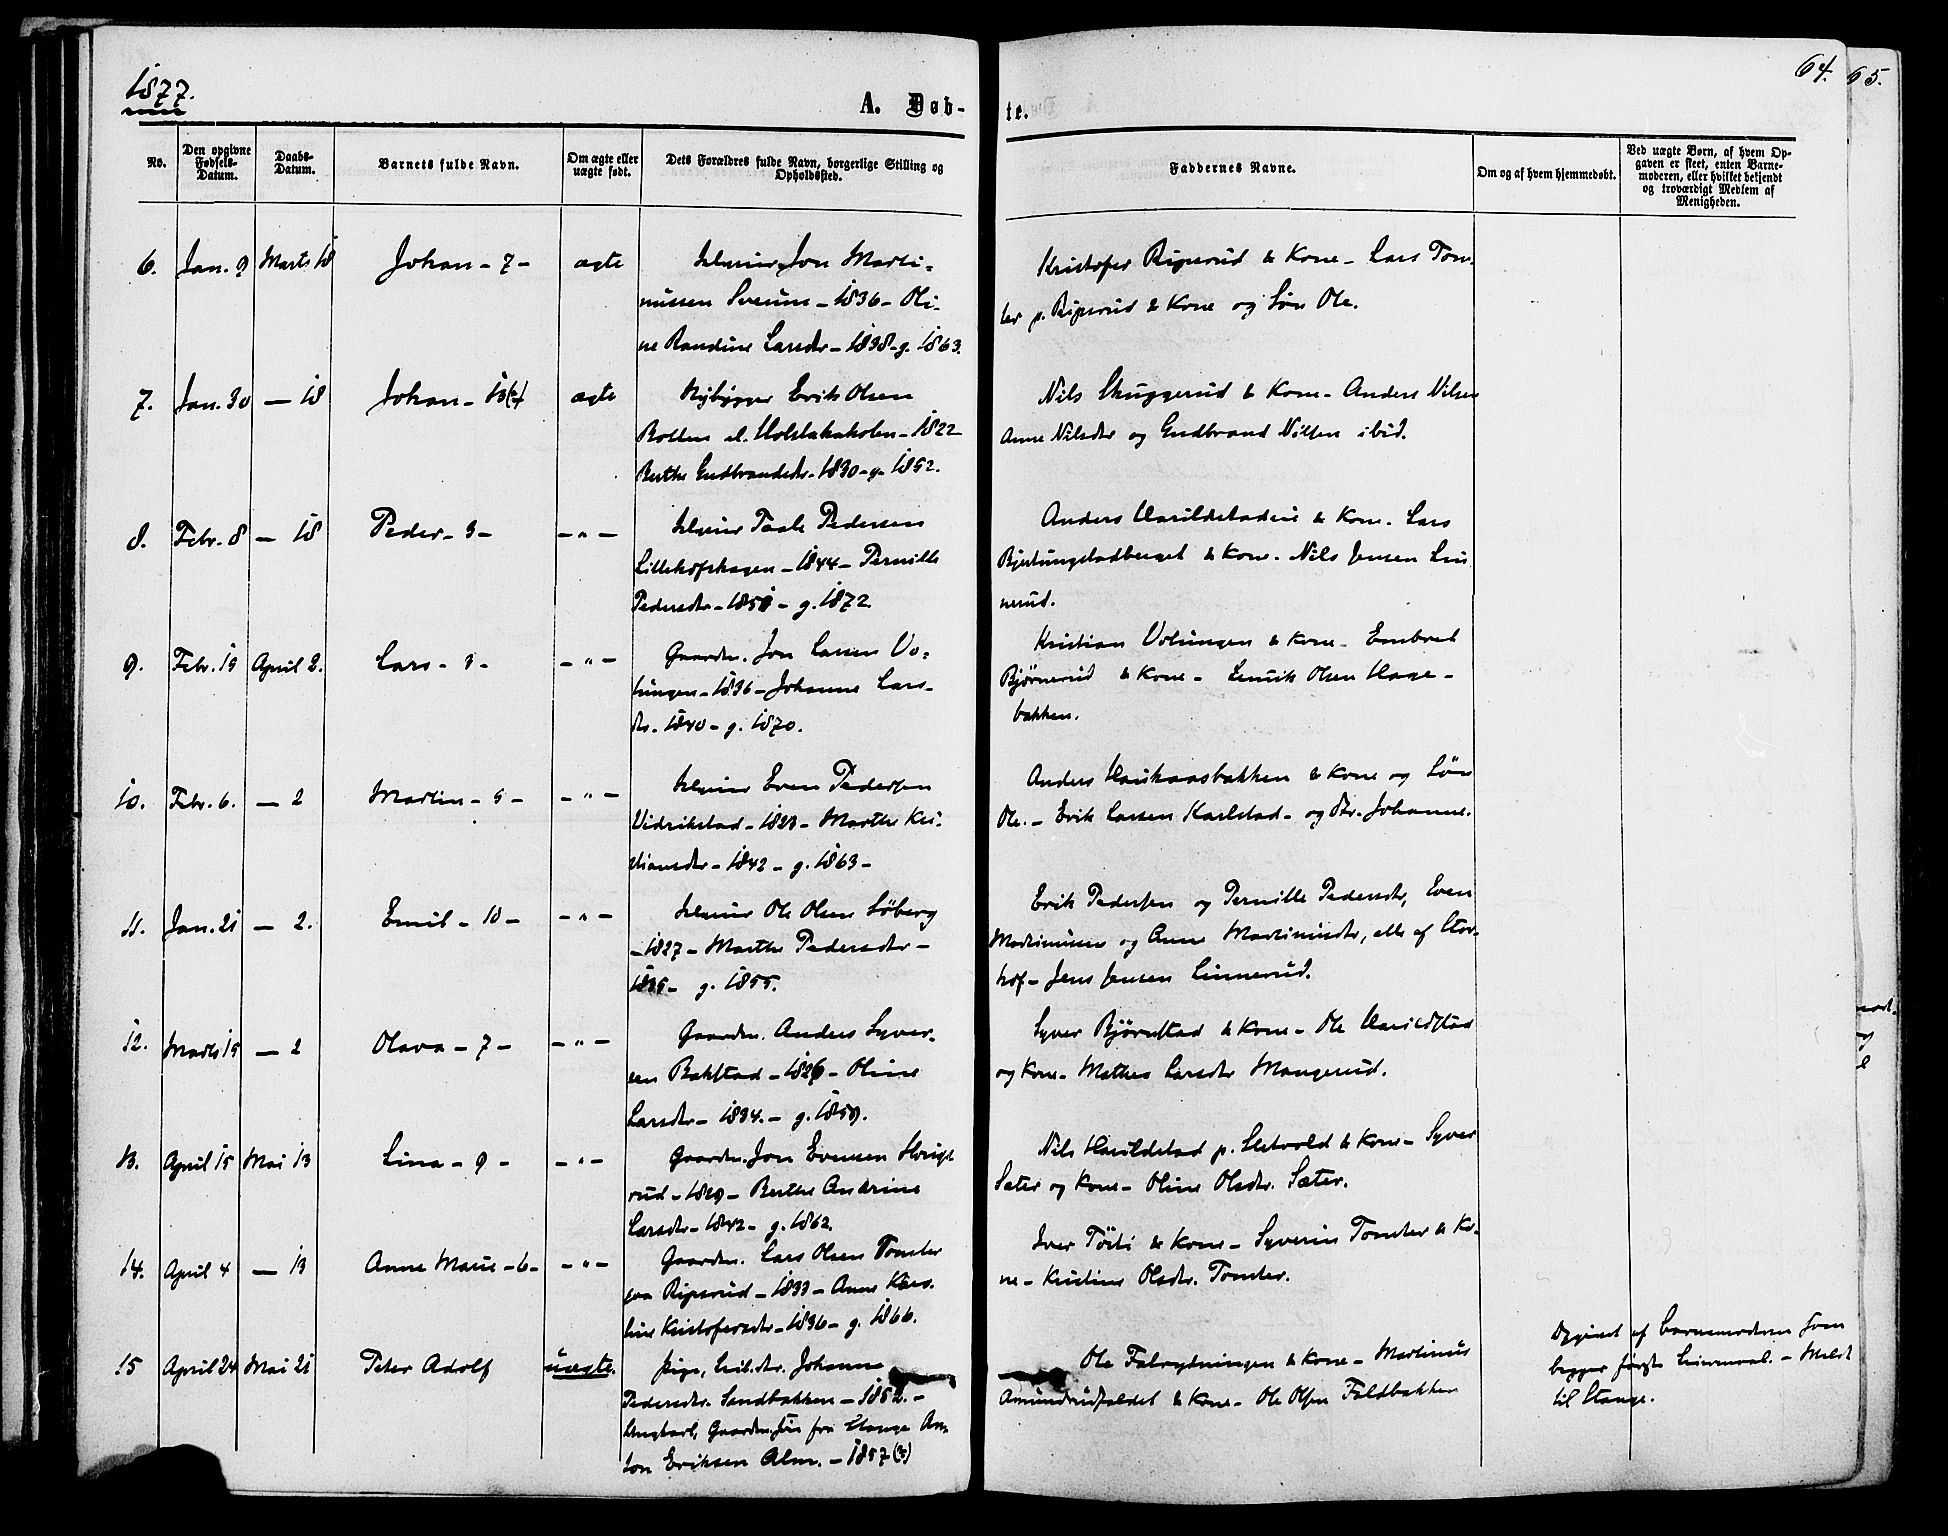 1877.
64.
65.
A. Døb-
te.
No.
Den opgivne
Fødsels-
Datum.
Daabs-
Datum.
Barnets fulde Navn.
Om ægte eller
uægte født.
Dets Forældres fulde Navn, borgerlige Stilling og
Opholdssted.
Faddernes Navne.
Om og af hvem hjemmedøbt.
Ved uægte Børn, af hvem Op-
gaven er skeet, enten Barne-
moderen, eller hvilket bekjendt
og troværdigt Medlem af
Menigheden.
6. Jan. 9 Marts 18 Johan - 7 - ægte
Jon Marti-
nussen Sveum - 1836 - Oli-
ne Randine Larsdtr - 1838 - g. 1863.
Kristofer Ripsrud & Kone - Lars Tom-
ter p. Ripsrud & Kone og Søn Ole.
7. Jan. 30 - 18 Johan - 13(?) ægte
Nybygger Erik Olsen
Botten el. - 1822
Berthe Gudbrandsdtr - 1830 - g. 1852.
Nils Skuggerud & Kone - Anders Nilsen
Anne Nilsdtr og Gudbrand Nilsen ibid.
8. Febr. 8 - 18 Peder - 3 - - " -
Pedersen
Lillehofshagen - 1844 - Pernille
Pedersdtr - 1851 - g. 1872
Anders & Kone. Lars
& Kone. Nils Jensen Lin
nerud.
9. Febr. 19 April 2. Lars - 3 - - " -
Gaardm. Jon Larsen Vo-
lungen - 1836 - Johanne Lars-
dtr. 1840 - g. 1870.
Kristian Volungen & Kone - Embret
Bjørnerud & Kone - Olsen Hage-
bakken.
10. Febr. 6. - 2 Martin - 9 - - " -
Even Pedersen
Vidrikstad - 1823 - Marthe Kri-
stiansdtr - 1842 - g. 1863 -
Anders Haukaasbakken & Kone og Søn
Ole. - Erik Larsen Karlstad - og Dtr. Johanne.
11. Jan. 21 - 2. Emil - 10 - - " -
Ole Olsen Søberg
- 1827 - Marthe Pedersdtr -
g. 1855.
Erik Pedersen og Pernille Pedersdtr, Even
Martinussen og Anne Martinusdtr, alle af Stor-
hof - Jens Jensen Linnerud.
12. Marts 15 - 2 Olava - 7 - - " -
Gaardm. Anders Syver-
sen Bakstad - 1826 - Oline
Larsdtr - 1834. - g. 1859.
Syver Bjørnstad & Kone - Ole Harildstad
og Kone - Mathea Larsdtr Mangerud.
13. April 15 Mai 13 Lina - 9 - - " -
Gaardm. Jon Evensen
rud - 1829 - Berthe Andrine
Larsdtr - 1842 - g. 1862.
Nils Harildstad p. Sletvold & Kone - Syver
Sæter og Kone - Oline Olsdtr. Sæter.
14. April 4 - 13 Anne Marie - 6 - - " -
Gaardm. Lars Olsen Tomter
paa Ripsrud - 1833 - Anne Karo-
line Kristofersdtr - 1836 - g. 1866.
Iver Töiti & Kone - Syverin Tomter & Ko-
ne - Kristine Olsdtr. Tomter.
15 April 24 Mai 21 Peter Adolf uægte.
Pige, Johanne
Pedersdtr. Sandbakken - 1852. -
Ungkarl, Gaardm.søn fra Stange An-
ton Eriksen Alm. - 1857 (?)
Ole Falrydningen & Kone - Martinus
Amundrudfaldet & Kone - Ole Olsen Faldbakken
Opgivet af Barnemoderen som
begges første Leiermaal. - Meldt
til Stange.